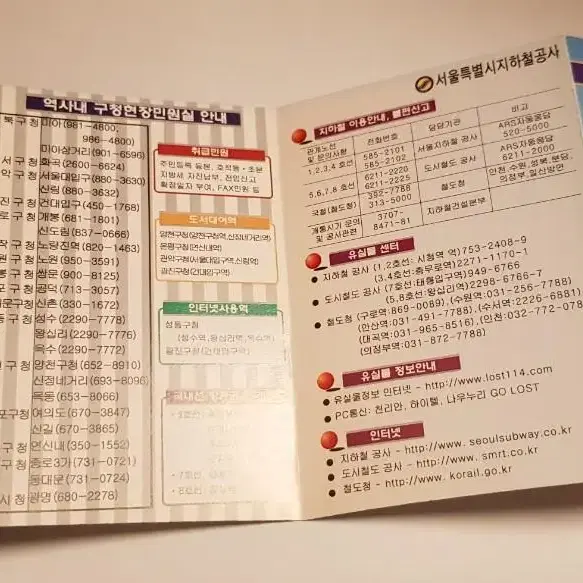 역사내 구청현장민원실 안내
북구청 미아(981-4800,
986-4800)
미아삼거리(901-6596)
서구청 화곡(2600-6624)
악구청 서울대입구(880-3630)
신림(880-3632)
진구청 건대입구(450-1768)
로구청 개봉(681-1801)
신도림(837-0666)
작구청 노량진역(820-1463)
원구청 노원(950-3591)
봉구청 쌍문(900-8125)
포구청 공덕(713-3057)
대문구청 신촌(330-1672)
동구청 성수(2290-7778)
왕십리(2290-7776)
옥수(2290-7772)
천구청 양천구청(652-8910)
신정네거리(693-8096)
목동(653-8066)
포구청 여의도(670-3847)
신길(670-3865)
구청 연신내(350-1552)
구청 종로3가(731-0721)
동대문(731-0724)
시청 광명(680-2278)
취급민원
주민등록 등본, 호적등·초본
지방세 자진납부, 전입신고
확정일자 부여, FAX민원 등
도서대여역
양천구청(양천구청역,신정네거리역)
은평구청(연신내역)
관악구청(서울대입구역,신림역)
광진구청(건대입구역)
인터넷사용역
성동구청
(성수역,왕십리역,옥수역)
광진구청(건대입구역)
서울특별시지하철공사
지하철 이용안내, 불편신고
관계노선 및 문의사항 전화번호 담당기관 비고
1,2,3,4 호선 585-2101 585-2102 서울지하철 공사 ARS자동응답 520-5000
5,6,7,8 호선 6211-2200 6211-2225 도시철도 공사 ARS자동응답 6211-2000
국철(철도청) 392-7788 313-5000 철도청 인천,수원,성북,분당, 의정부,일산방면
개통시기 문의 및 공사관련 3707-8471-81 지하철건설본부
유실물 센터
• 지하철 공사 (1,2호선: 시청역 역)753-2408~9
(3,4호선:충무로역)2271-1170~1
• 도시철도 공사 (7호선:태릉입구역)949-6766
(5,8호선:왕십리역)2298-6766~7
• 철도청 (구로역:869-0069),(수원역:031-256-7788)
(안산역:031-491-7788), (수서역:2226-6881)
(대곡역:031-965-8516), (인천:032-772-078
(의정부역:031-872-7788)
유실물 정보안내
• 유실물정보 인터넷 - http://www.lost114.com
• PC통신: 천리안, 하이텔, 나우누리 GO LOST
인터넷
• 지하철 공사 - http://www. seoulsubway.co.kr
• 도시철도 공사 - http://www. smrt.co.kr
• 철도청 - http://www. korail.go.kr